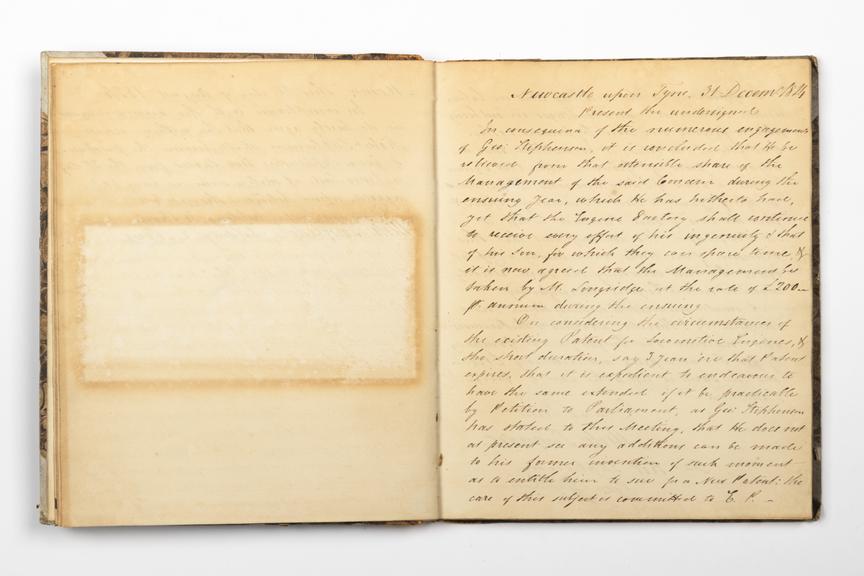 Newcastle upon Tyne, 31 Decemr 1824
Present the undersigned
In consequence of the numerous engagements
of Geo: Stephenson, it is concluded that He be
released from that ostensible share of the
Management of the said Concern during the
ensuing Year, which He has hitherto had,
yet that the Engine Factory shall continue
to receive every effort of his ingenuity & that
of his Son, for which they can spare time, &
it is now agreed that the Management be
taken by M. Longridge at the rate of £200
Pr. annum during the ensuing
On considering the circumstances of
the existing Patent for Locomotive Engines, &
the short duration, say 3 Years ere that Patent
expires, that it is expedient to endeavour to
have the same extended if it be practicable
by Petition to Parliament, as Geo: Stephenson
has stated to this Meeting, that He does not
at present see any additions can be made
to his former invention of such moment
as to entitle him to sue for a New Patent: the
care of this subject is committed to E. P. -